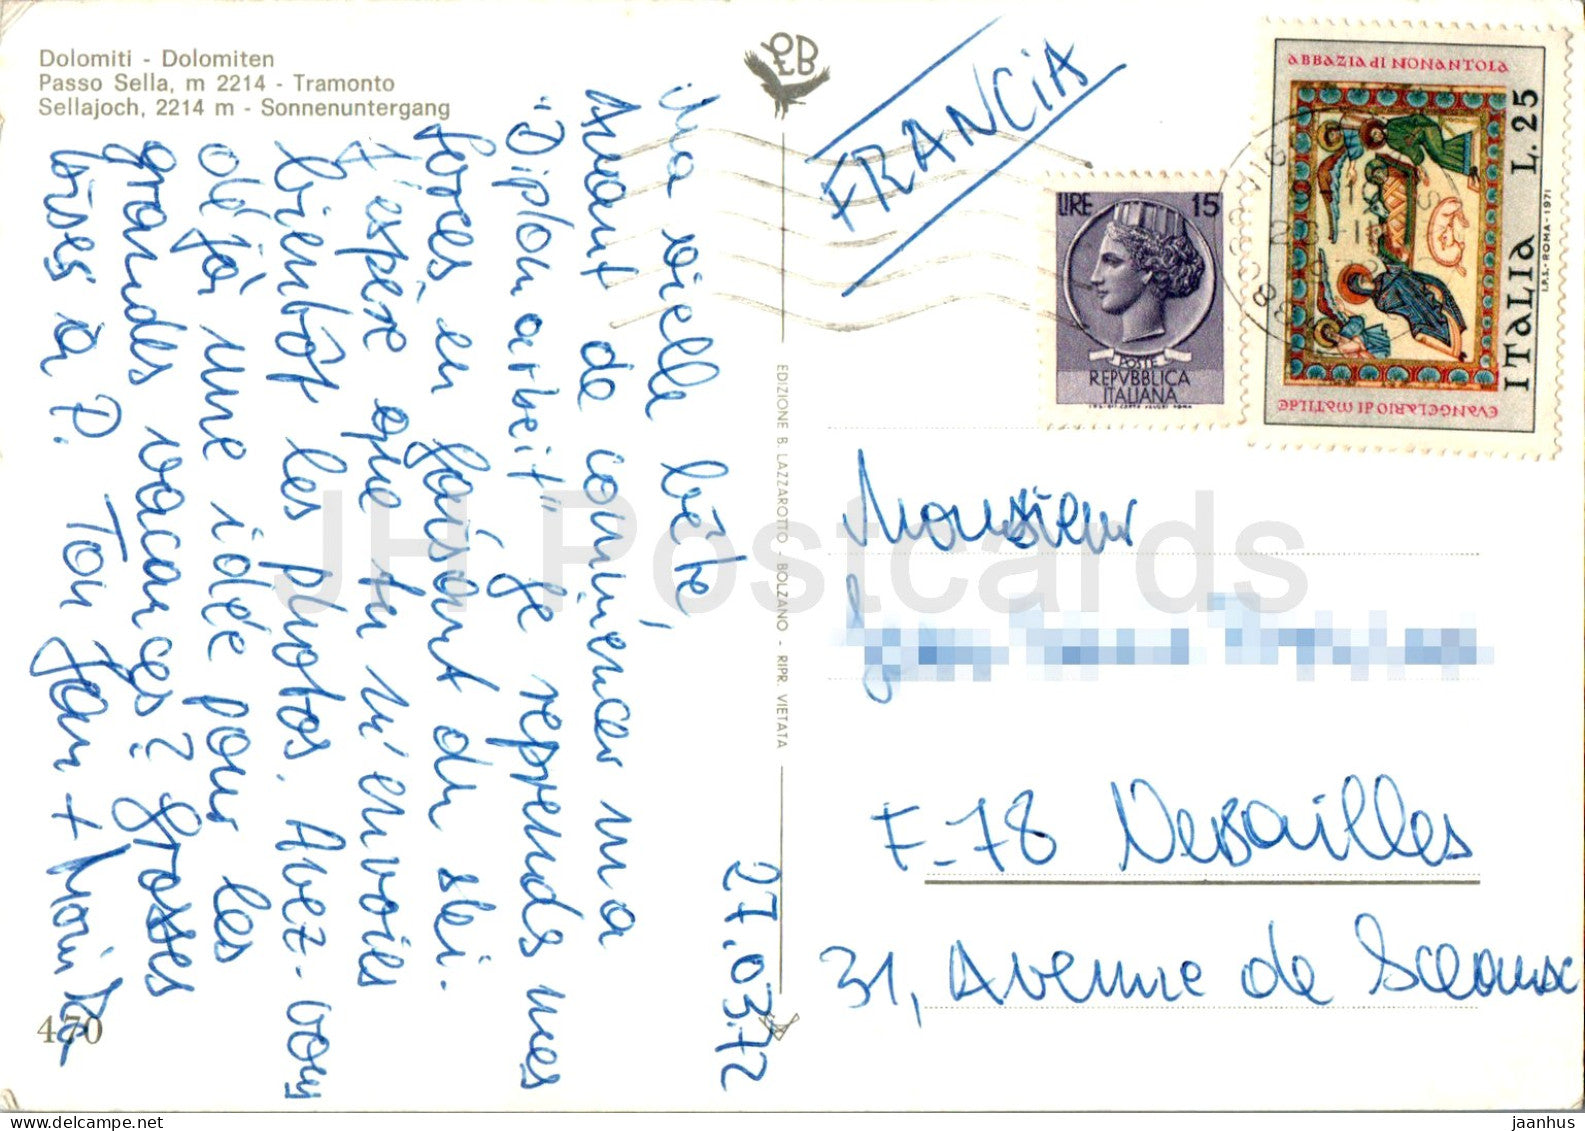 Dolomiti - Dolomiten
Passo Sella, m 2214 - Tramonto
Sellajoch, 2214 m - Sonnenuntergang
27.03.72
Ma vielle bête,
Avant de commencer ma
"Diplomarbeit" je reprends mes
forces en faisant du ski.
J'espère que tu m'envoies
bientôt les photos. Avez-vous
déjà une idée pour les
grandes vacances? Grosses
bises à P. Ton Jan +
470
EDIZIONE B. LAZZAROTTO - BOLZANO - RIPR. VIETATA
FRANCIA
LIRE 15
POSTE
REPVBBLICA
ITALIANA
ABBAZIA di NONANTOLA
ITALIA L. 25
I.P.S. - ROMA - 1971
EVANGELARIO di MATILDE
Monsieur
F-78 Versailles
31, Avenue de Sceaux
JH Postcards
jaanhus
www.delcampe.net